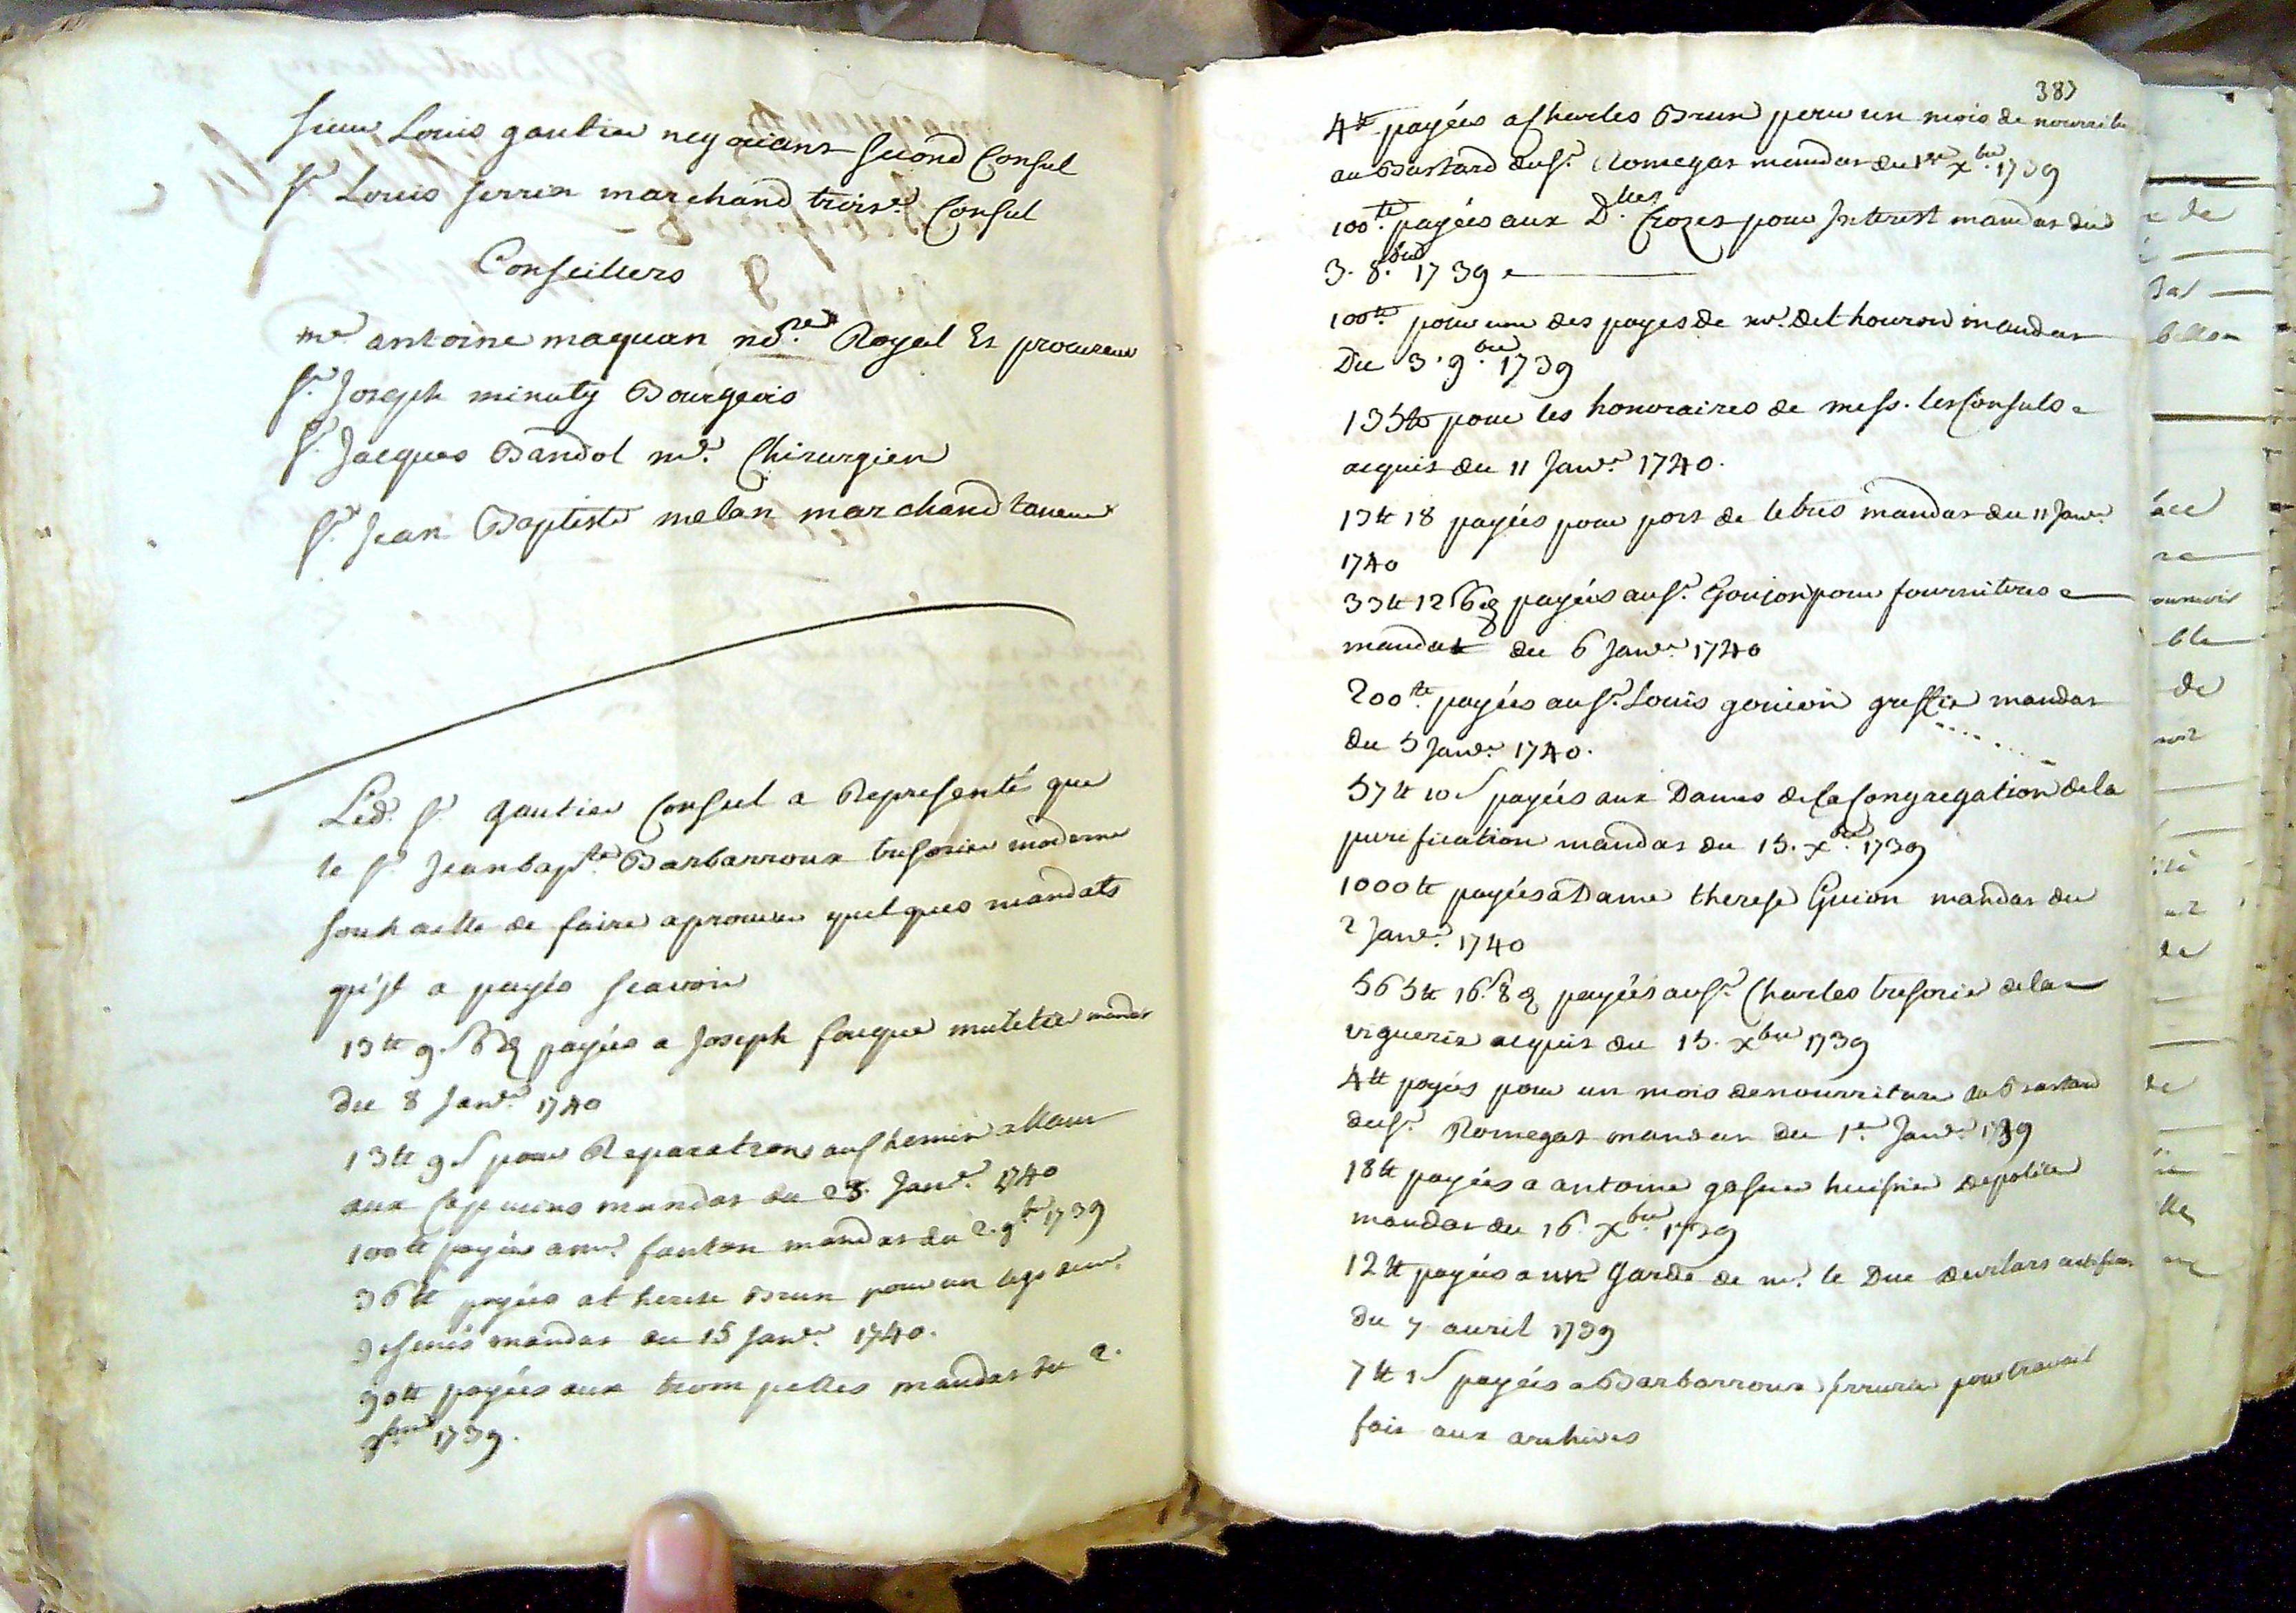 sieur Louis gautier negociant second Consul
sr Louis ferrier marchand troise Consul
Conseillers
me antoine maquan nore Royal Et procureur
sr Joseph minuty Bourgeois
sr Jacques Bandol me Chirurgien
sr Jean Baptiste melan marchand taneur
Led. sr gautier Consul a Representé que
le sr Jean bapte Barbarroux tresorier moderne
souhaitte de faire aprouver quelques mandats
qu'il a payés scavoir
13 tt 9 s 6 d payées a Joseph fouque muletier mandat
du 8 Janer 1740
13 tt 9 s pour Reparations au chemin allant
aux Capucins mandat du 23. Janer 1740
100 tt payées a mr fanton mandat du 2. 9bre 1739
36 tt payées a therese Brun pour un legs
mandat du 15 Janer 1740.
90 tt payées aux trompettes mandat du 2.
1739.
387
4 tt payées a Charles Brun pour un mois de nourritu
au Bastard du sr Romegas mandat du 1er xbre 1739
100 tt payées aux Dlles Crozet pour Interest mandat du
3. 8bre 1739
100 tt pour une des payes de mr. de thouron mandat
Du 3. 9bre 1739
135 tt pour les honoraires de mess. les Consuls
acquit du 11 Janer 1740.
13 tt 18 payées pour port de letres mandat du 11 Janer
1740
33 tt 12 s 6 d payées au sr Goujon pour fournitures
mandat du 6 Janer 1740
200 tt payées au sr Louis goujon greffier mandat
du 5 Janer 1740.
57 tt 10 s payées aux Dames de la Congregation de la
purification mandat du 15. xbre 1739
1000 tt payées a Dame therese Guion mandat du
2 Janer 1740
565 tt 16 s 8 d payées au sr Charles tresorier de la
viguerie acquit du 15. xbre 1739
4 tt payées pour un mois de nourriture du Bastard
du sr Romegas mandat du 1er Janer 1739
18 tt payées a antoine gasner huissier de police
mandat du 16 xbre 1739
12 tt payées a un Garde de mr. le Duc de villars
du 7 avril 1739
7 tt 1 s payées a Barbarroux serrurier pour travail
fait aux archives